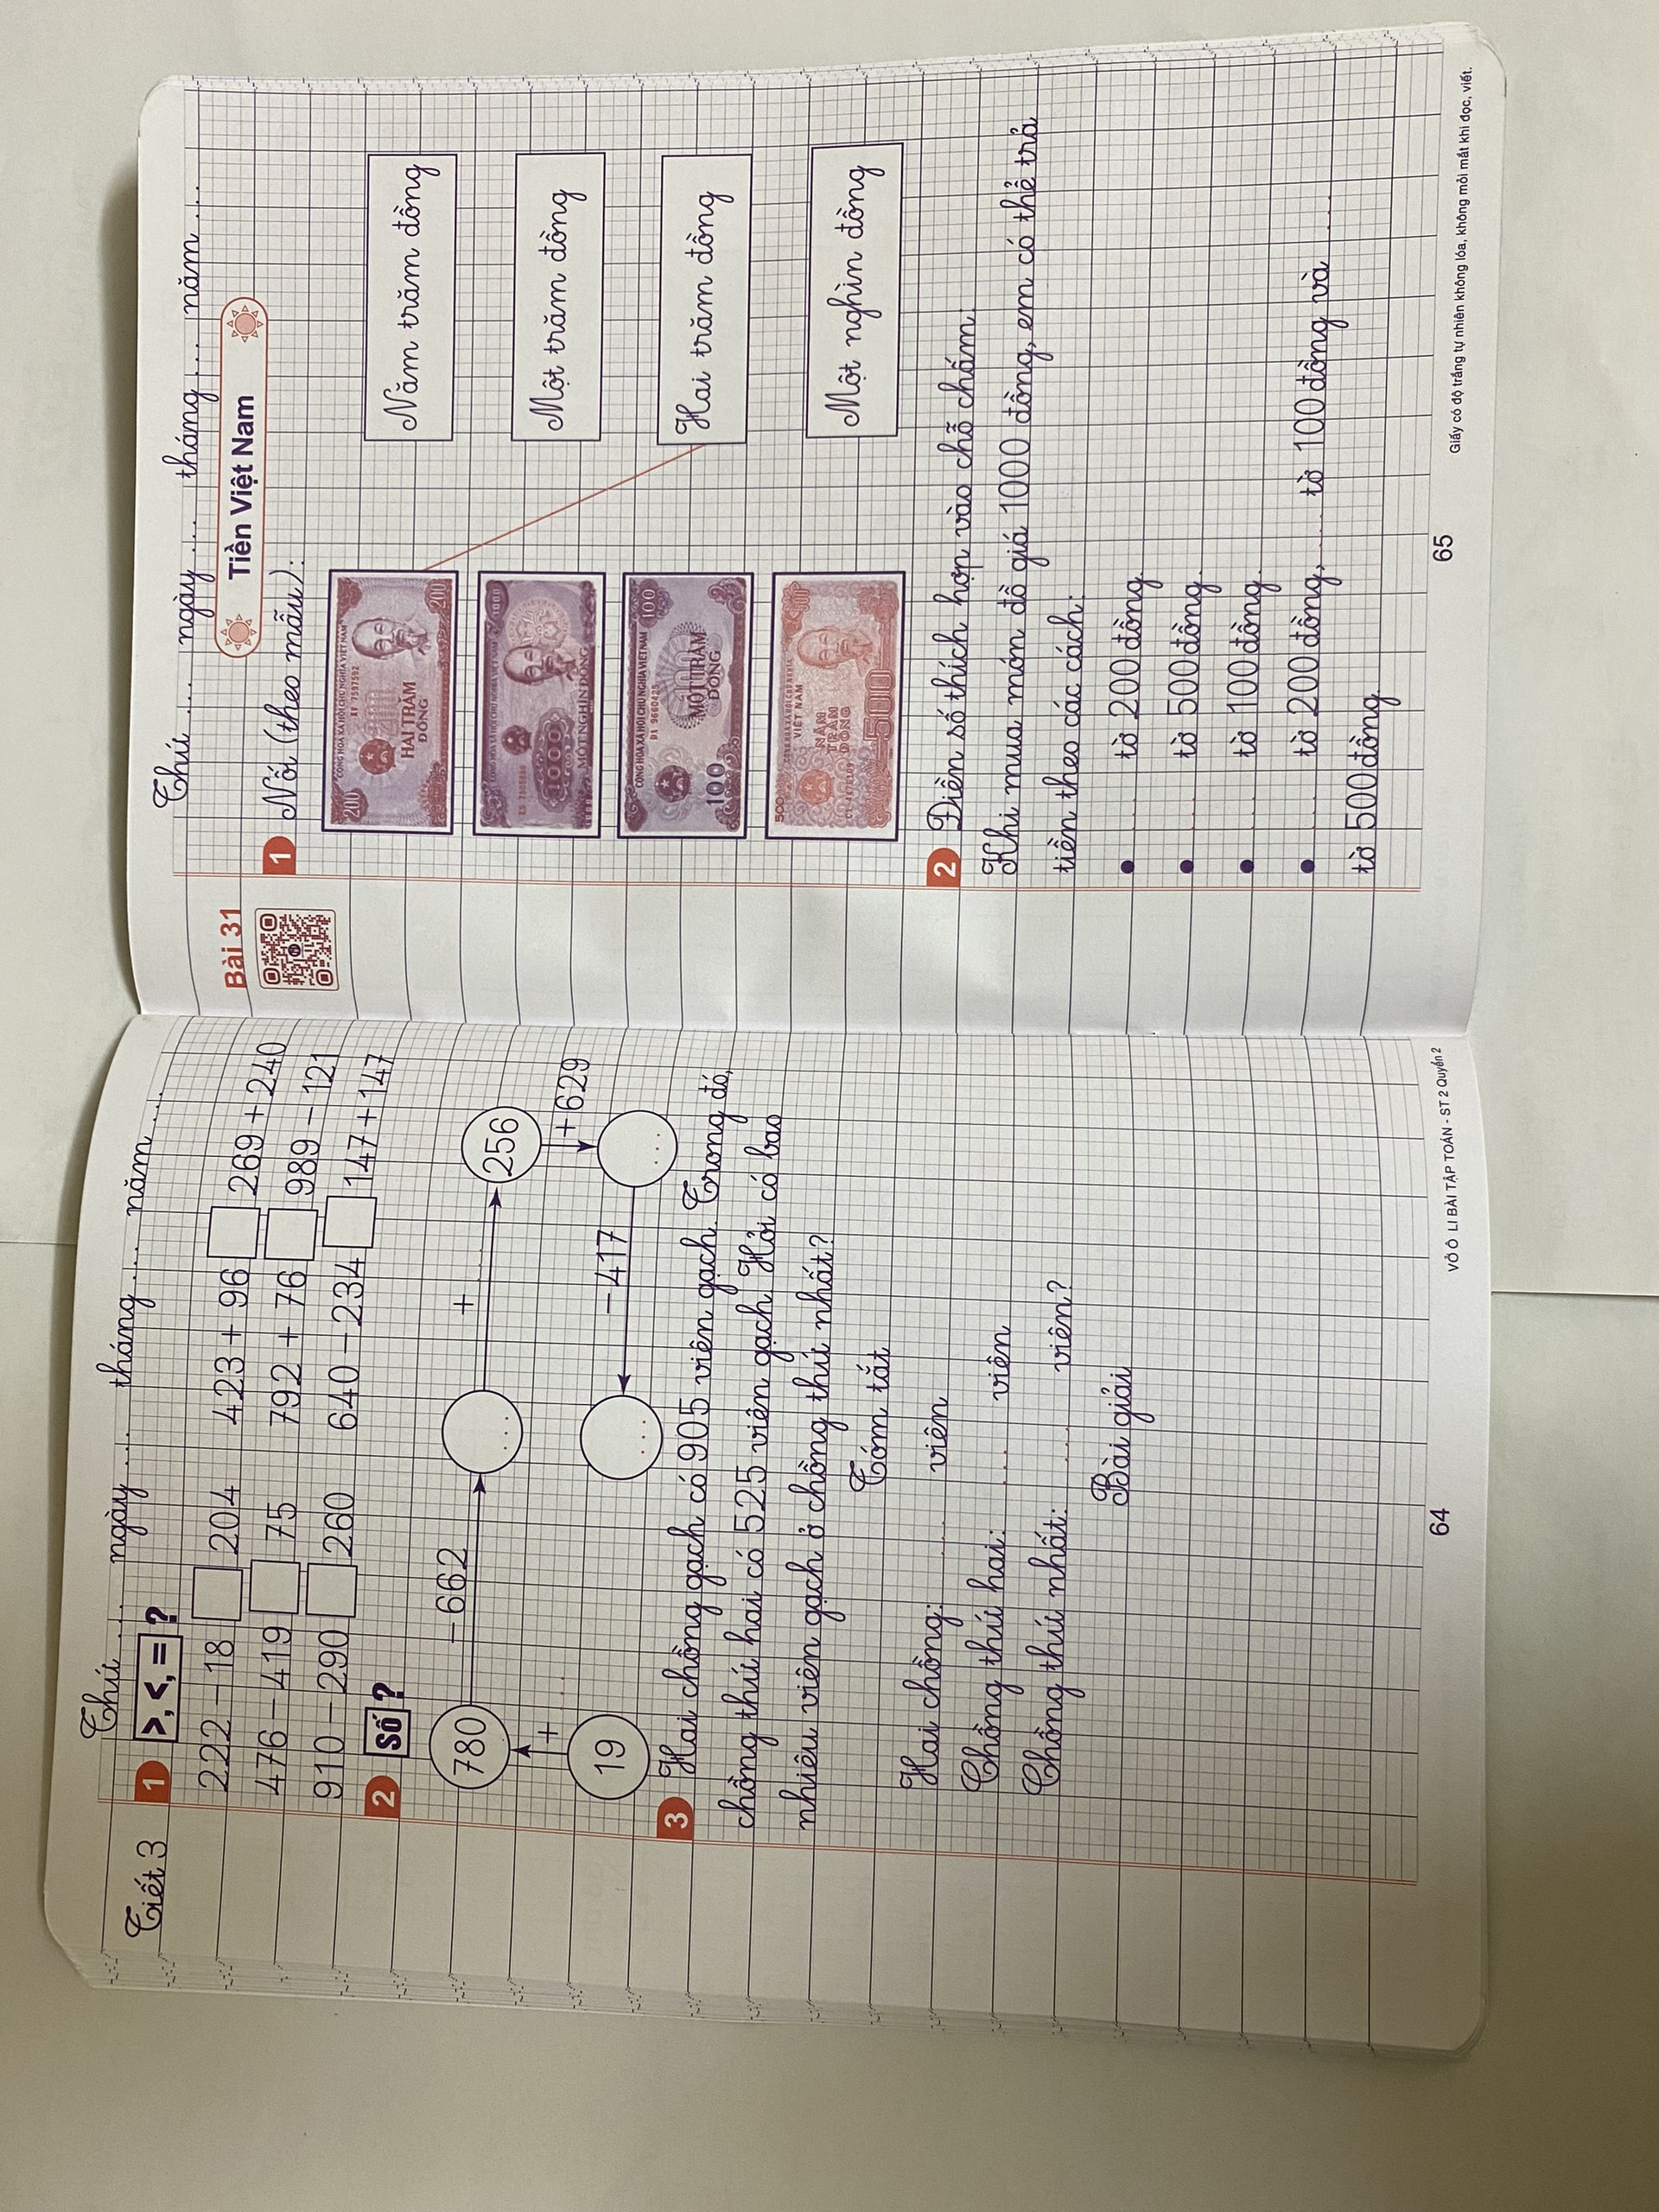 Thứ .... ngày .... tháng .... năm ....
Tiết 3
1 >, <, = ?
222 – 18 204 423 + 96 269 + 240
476 – 419 75 792 + 76 989 – 121
910 – 290 260 640 – 234 147 + 147
2 Số ?
780 – 662 ... + ..... 256
+ ..... + 629
19 ... – 417 ...
3 Hai chồng gạch có 905 viên gạch. Trong đó,
chồng thứ hai có 525 viên gạch. Hỏi có bao
nhiêu viên gạch ở chồng thứ nhất?
Tóm tắt
Hai chồng: ..... viên
Chồng thứ hai: ..... viên
Chồng thứ nhất: ..... viên?
Bài giải
64
VỞ Ô LI BÀI TẬP TOÁN - ST 2 Quyển 2
Thứ .... ngày .... tháng .... năm ....
Bài 31
Tiền Việt Nam
1 Nối (theo mẫu):
CỘNG HÒA XÃ HỘI CHỦ NGHĨA VIỆT NAM
200
HAI TRĂM
ĐỒNG
200
Năm trăm đồng
1000
MỘT NGHÌN ĐỒNG
Một trăm đồng
CỘNG HÒA XÃ HỘI CHỦ NGHĨA VIỆT NAM
100
MỘT TRĂM
ĐỒNG
100
Hai trăm đồng
500
VIỆT NAM
NĂM
TRĂM
ĐỒNG
500
Một nghìn đồng
2 Điền số thích hợp vào chỗ chấm:
Khi mua món đồ giá 1000 đồng, em có thể trả
tiền theo các cách:
• ..... tờ 200 đồng.
• ..... tờ 500 đồng.
• ..... tờ 100 đồng.
• ..... tờ 200 đồng, ..... tờ 100 đồng và .....
tờ 500 đồng.
65
Giấy có độ trắng tự nhiên không lóa, không mỏi mắt khi đọc, viết.